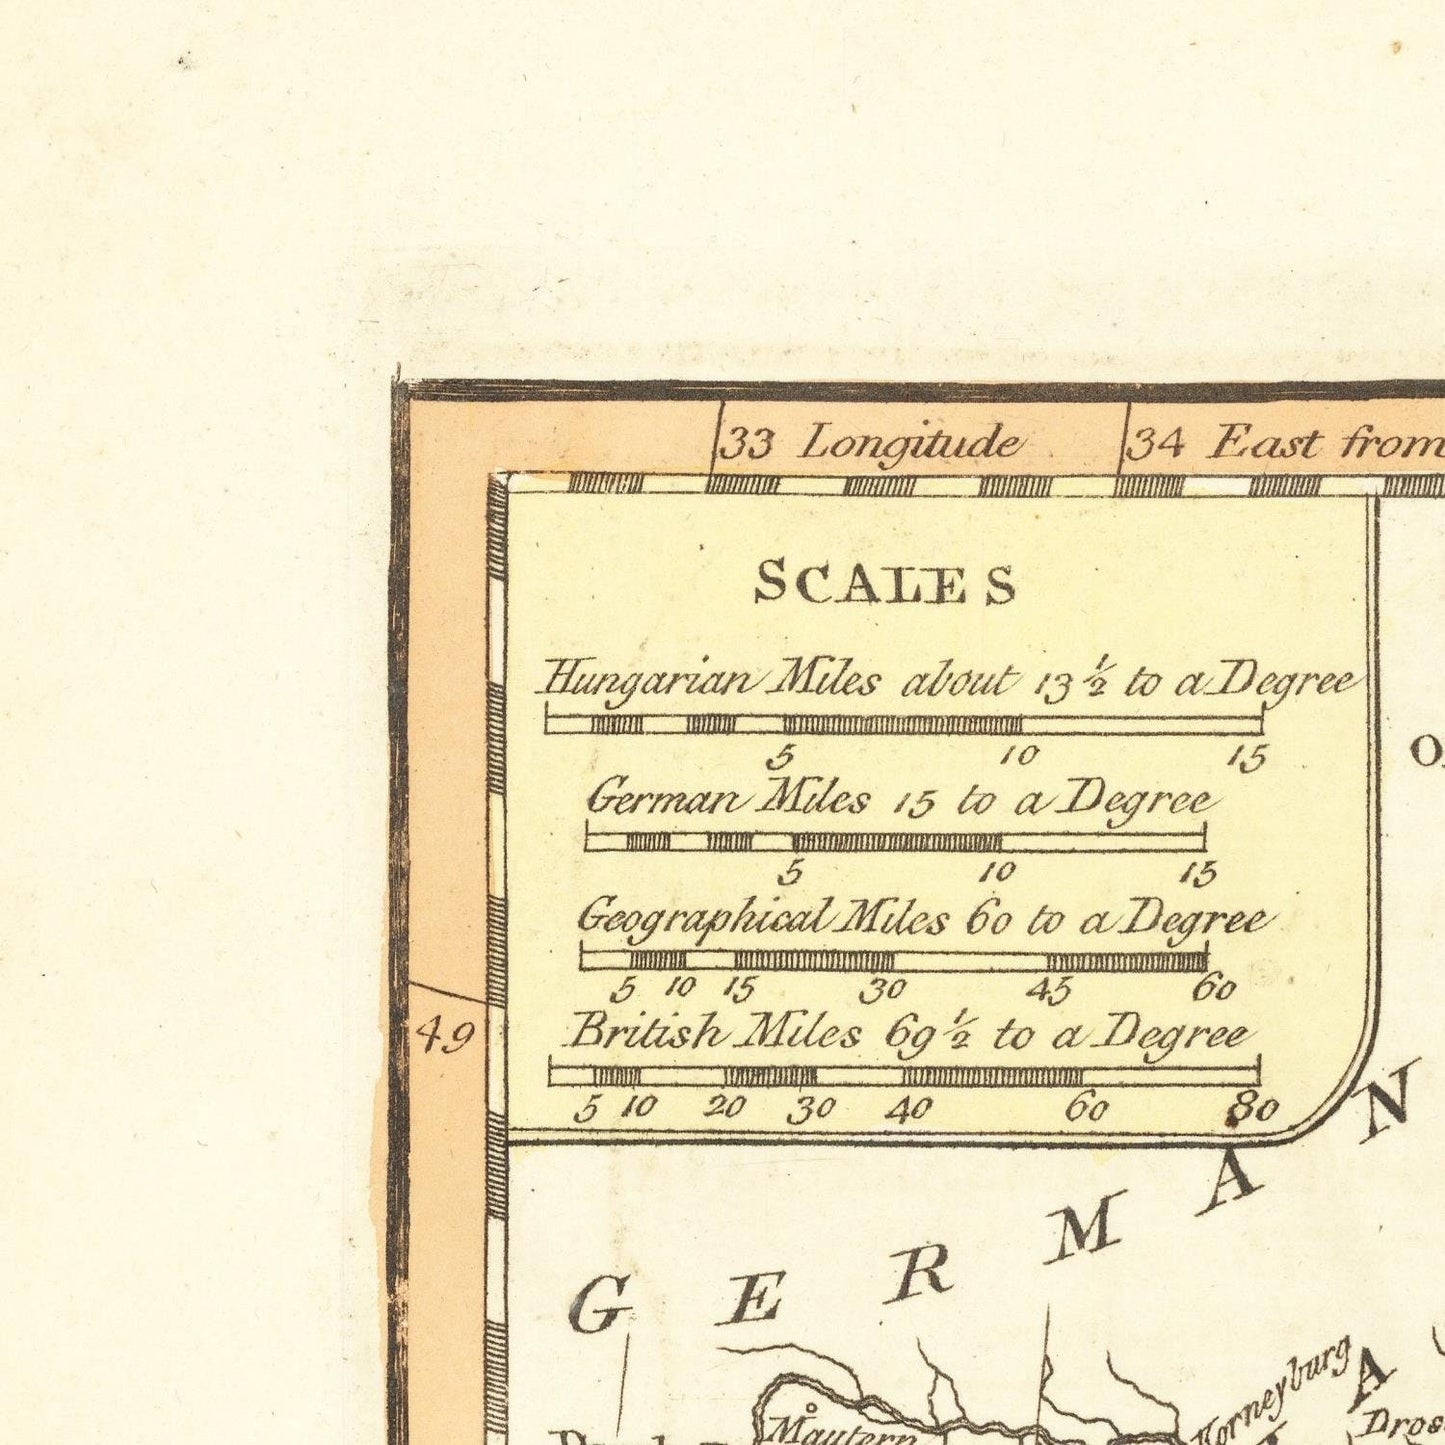 33 Longitude 34 East from
SCALES
Hungarian Miles about 13 ½ to a Degree
5 10 15
German Miles 15 to a Degree
5 10 15
Geographical Miles 60 to a Degree
5 10 15 30 45 60
British Miles 69 ½ to a Degree
5 10 20 30 40 60 80
49
GERMAN
Korneyburg
A
Mautern